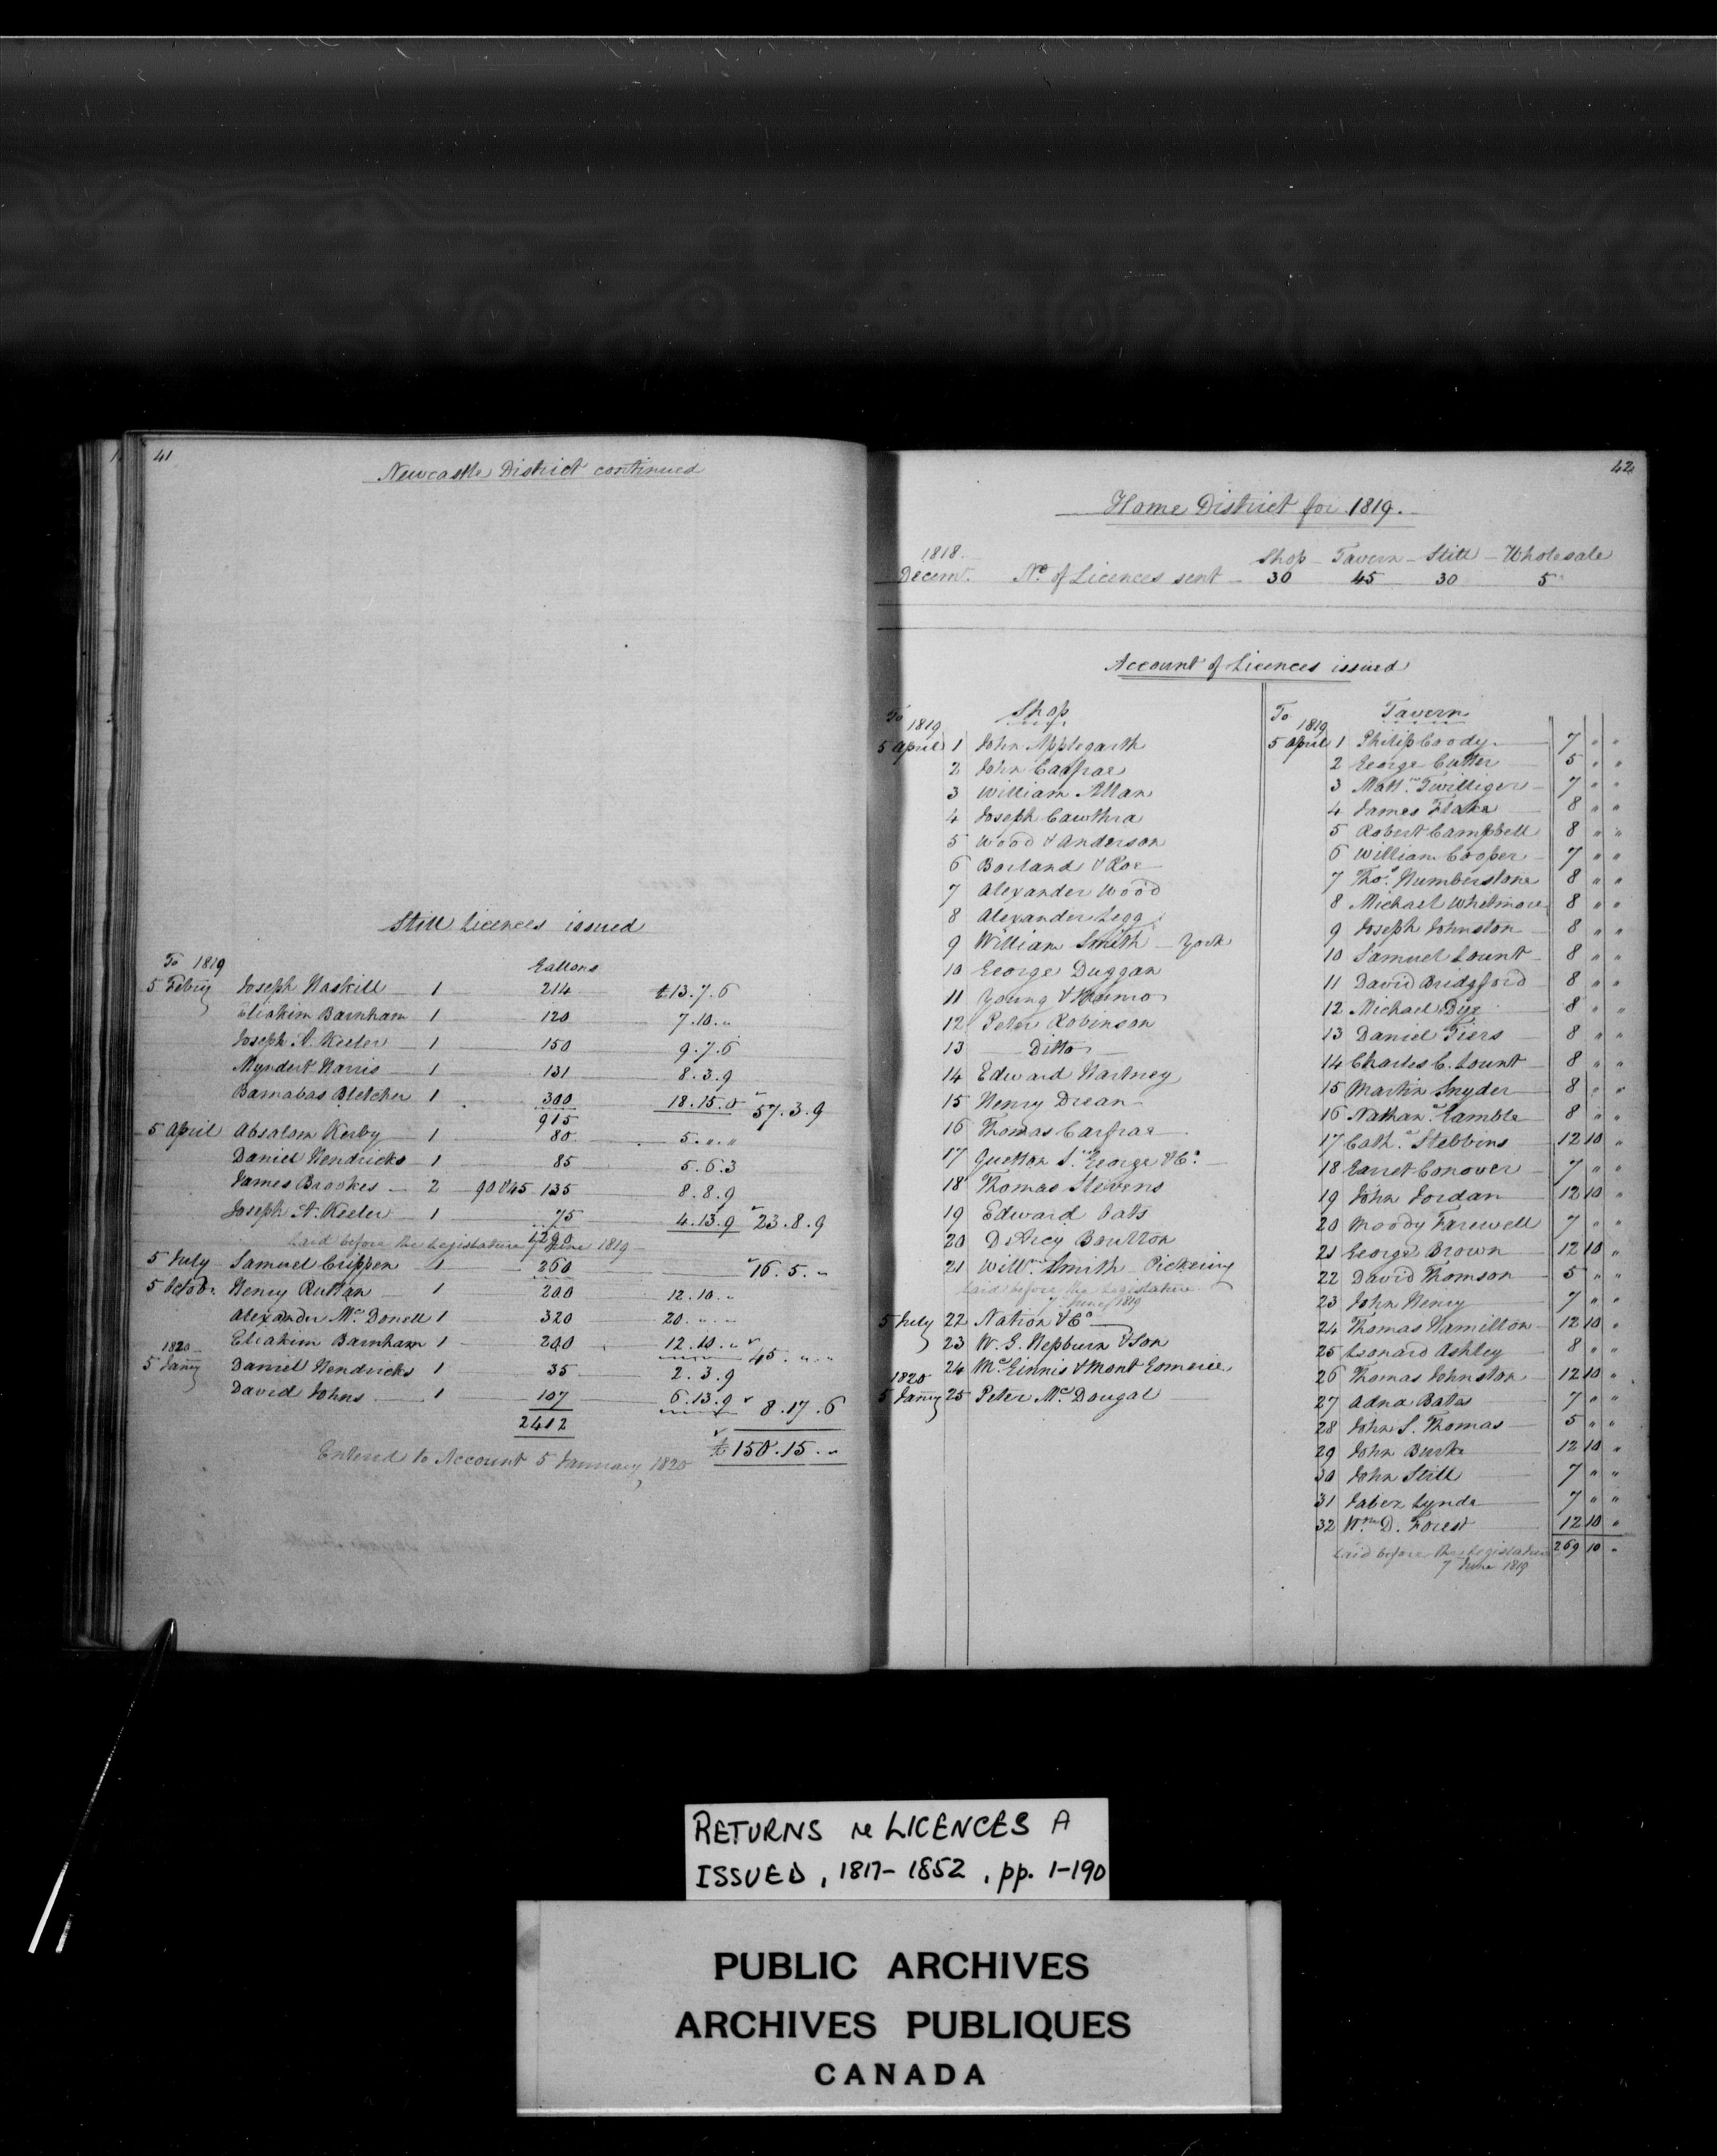 41
Newcastle District continued
Still Licences issued
To 1819
Gallons
5 Febry Joseph Haskill 1 214 £13.7.6
Eliakim Barnham 1 120 7.10.„
Joseph A. Keeler 1 150 9.7.6
Myndert Harris 1 131 8.3.9
Barnabas Bletcher 1 300 18.15.0 57.3.9
915
5 April Absalom Kerby 1 80 5.„.„
Daniel Hendricks 1 85 5.6.3
James Brookes 2 90 & 45 135 8.8.9
Joseph A. Keeler 1 75 4.13.9 23.8.9
1290
Laid before the Legislature 7 June 1819
5 July Samuel Crippen 1 260 16.5.„
5 Octobr. Henry Ruttan 1 200 12.10.„
Alexander Mc.Donell 1 320 20.„.„
Eliakim Barnham 1 200 12.10.„ 45.„.„
1820
5 Janry Daniel Hendricks 1 35 2.3.9
David Johns 1 107 6.13.9 8.17.6
2412
£150.15.„
Entered to Account 5 January 1820
42
Home District for 1819.
1818. Shop Tavern Still Wholesale
Decemr. No. of Licences sent 30 45 30 5
Account of Licences issued
To 1819 Shop
5 April 1 John Applegarth
2 John Carfrae
3 William Allan
4 Joseph Cawthra
5 Wood & Anderson
6 Borland & Roe
7 Alexander Wood
8 Alexander Legg
9 William Smith York
10 George Duggan
11 Young & Munro
12 Peter Robinson
13 Ditto
14 Edward Hartney
15 Henry Drean
16 Thomas Carfrae
17 Quetton St. George & Co.
18 Thomas Stevens
19 Edward Oats
20 D'Arcy Boulton
21 Willm. Smith Pickering
Laid before the Legislature
7 June 1819
5 July 22 Nation & Co
23 W. G. Hepburn & Son
24 Mc.Ginnis & Mont Gomerie
1820
5 Janry 25 Peter Mc.Dougal
To 1819 Tavern
5 April 1 Philip Coody 7 „ „
2 George Cutter 5 „ „
3 Matt.w Twilliger 7 „ „
4 James Flake 8 „ „
5 Robert Campbell 8 „ „
6 William Cooper 7 „ „
7 Thos. Humberstone 8 „ „
8 Michael Whitmore 8 „ „
9 Joseph Johnston 8 „ „
10 Samuel Lount 8 „ „
11 David Bridgford 8 „ „
12 Michael Dye 8 „ „
13 Daniel Tiers 8 „ „
14 Charles C. Lount 8 „ „
15 Martin Snyder 8 „ „
16 Nathan.l Gamble 8 „ „
17 Cath.e Stebbins 12 10 „
18 Garret Conover 7 „ „
19 John Jordan 12 10 „
20 Moody Farewell 7 „ „
21 George Brown 12 10 „
22 David Thomson 5 „ „
23 John Henry 7 „ „
24 Thomas Hamilton 12 10 „
25 Leonard Ashley 8 „ „
26 Thomas Johnston 12 10 „
27 Adna Bates 7 „ „
28 John S. Thomas 5 „ „
29 John Burke 12 10 „
30 John Still 7 „ „
31 Jabez Lynde 7 „ „
32 Wm. D. Forest 12 10 „
269 10 „
Laid before the Legislature
7 June 1819
RETURNS re LICENCES A
ISSUED, 1817-1852, pp. 1-190
PUBLIC ARCHIVES
ARCHIVES PUBLIQUES
CANADA